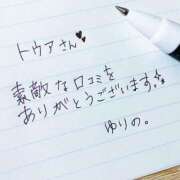 トウアさん♥
素敵な口コミを
ありがとうございます!!
ゆりの。